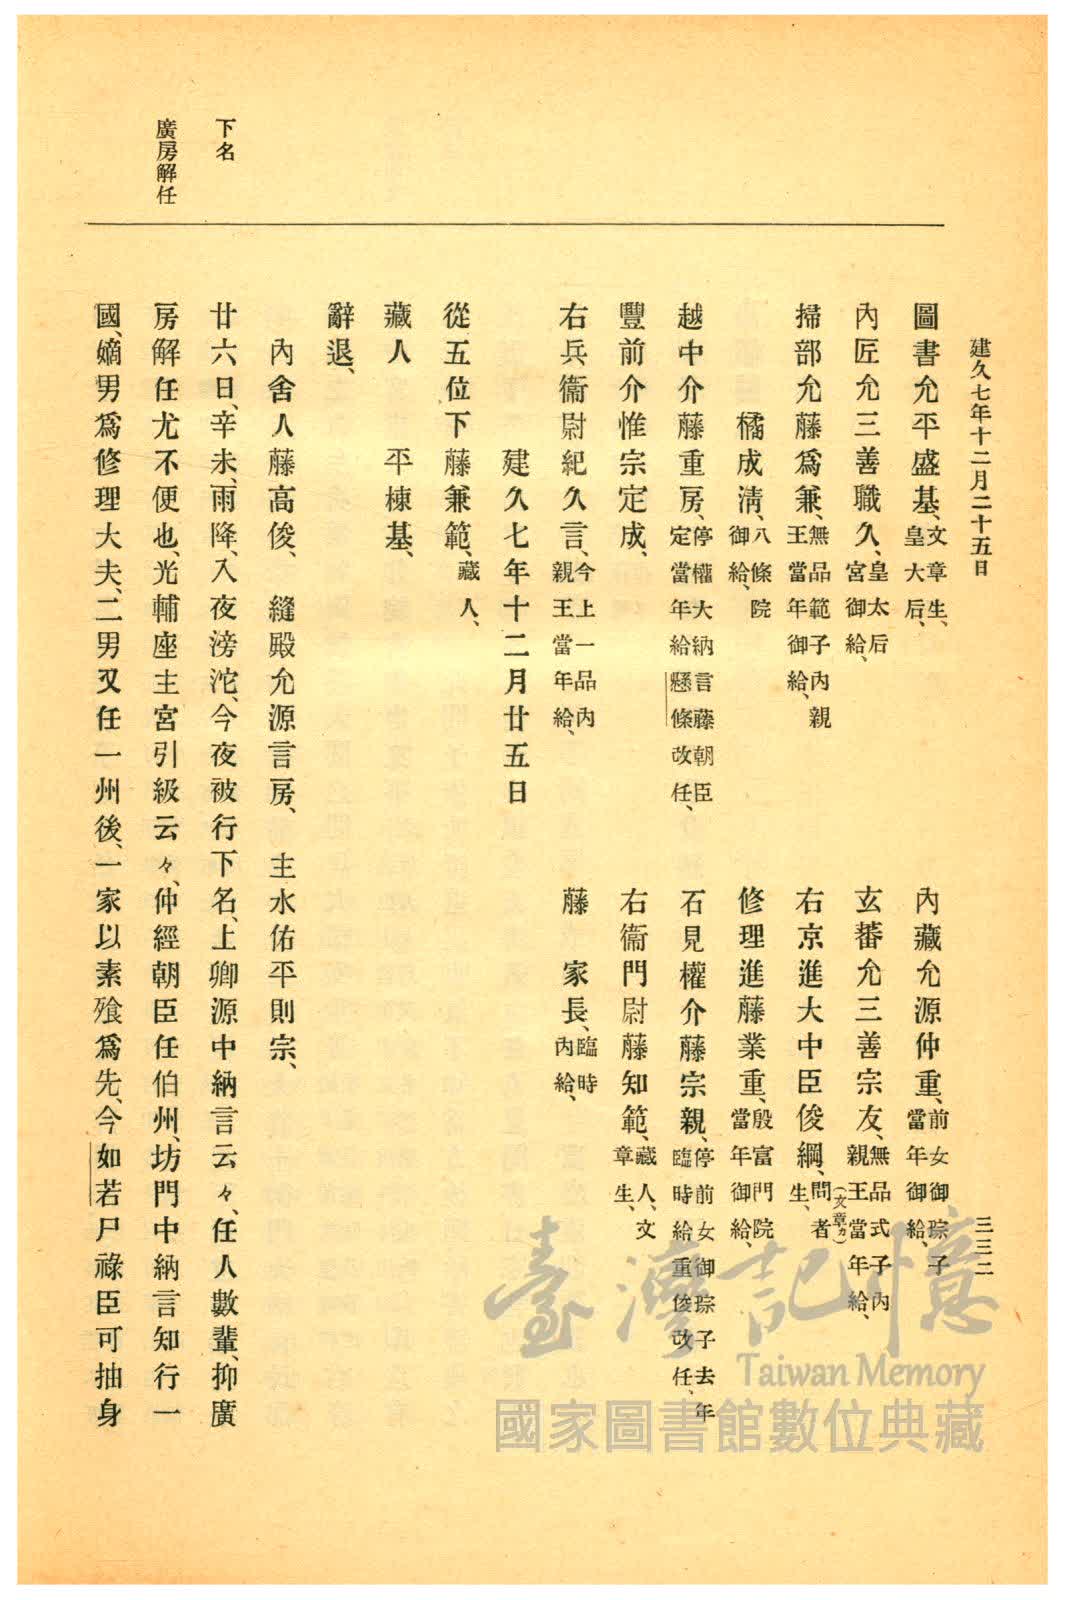 建久七年十二月二十五日
三三二
圖書允平盛基、文章生、皇大后、
內藏允源仲重、前女御琮子當年御給、
內匠允三善職久、皇太后宮御給、
玄蕃允三善宗友、無品式子內親王當年給、
掃部允藤爲兼、無品範子內親王當年御給、
右京進大中臣俊綱、問者生、(文章カ)
橘成淸、八條院御給、
修理進藤業重、殷富門院當年御給、
越中介藤重房、停權大納言藤朝臣定當年給懸條改任、
石見權介藤宗親、停前女御琮子去年臨時給重俊改任、
豐前介惟宗定成、
右衞門尉藤知範、藏人、文章生、
右兵衞尉紀久言、今上一品內親王當年給、
藤 家長、臨時內給、
建久七年十二月廿五日
從五位下藤兼範、藏人、
藏人 平棟基、
辭退、
內舍人藤高俊、 縫殿允源言房、 主水佑平則宗、
下名
廿六日、辛未、雨降、入夜滂沱、今夜被行下名、上卿源中納言云々、任人數輩、抑廣
廣房解任
房解任尤不便也、光輔座主宮引級云々、仲經朝臣任伯州、坊門中納言知行一
國、嫡男爲修理大夫、二男又任一州後、一家以素飡爲先、今如若尸祿臣可抽身
臺灣記憶
Taiwan Memory
國家圖書館數位典藏